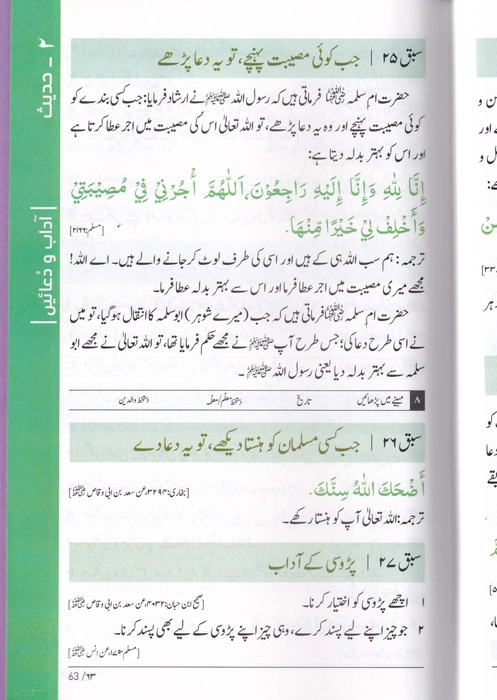 ۲ - حدیث
آداب و دُعائیں
سبق ۲۵ | جب کوئی مصیبت پہنچے، تو یہ دعا پڑھے
حضرت ام سلمہ رضی اللہ عنہا فرماتی ہیں کہ رسول اللہ ﷺ نے ارشاد فرمایا: جب کسی بندے کو
کوئی مصیبت پہنچے اور وہ یہ دعا پڑھے، تو اللہ تعالیٰ اس کی مصیبت میں اجر عطا کرتا ہے
اور اس کو بہتر بدلہ دیتا ہے:
إِنَّا لِلّٰهِ وَإِنَّا إِلَيْهِ رَاجِعُوْنَ، اَللّٰهُمَّ أْجُرْنِيْ فِيْ مُصِيْبَتِيْ
وَأَخْلِفْ لِيْ خَيْرًا مِّنْهَا.
[مسلم: ۲۱۶۶]
ترجمہ: ہم سب اللہ ہی کے ہیں اور اسی کی طرف لوٹ کر جانے والے ہیں۔ اے اللہ!
مجھے میری مصیبت میں اجر عطا فرما اور اس سے بہتر بدلہ عطا فرما۔
حضرت ام سلمہ رضی اللہ عنہا فرماتی ہیں کہ جب (میرے شوہر) ابو سلمہ کا انتقال ہو گیا، تو میں
نے اسی طرح دعا کی؛ جس طرح آپ ﷺ نے مجھے حکم فرمایا تھا، تو اللہ تعالیٰ نے مجھے ابو
سلمہ سے بہتر بدلہ دیا یعنی رسول اللہ ﷺ۔
۸ مہینے میں پڑھائیں تاریخ دستخط معلم/معلمہ دستخط والدین
سبق ۲۶ | جب کسی مسلمان کو ہنستا دیکھے، تو یہ دعا دے
أَضْحَكَ اللّٰهُ سِنَّكَ.
[بخاری: ۳۲۹۴، عن سعد بن ابی وقاص رضی اللہ عنہ]
ترجمہ: اللہ تعالیٰ آپ کو ہنستا رکھے۔
سبق ۲۷ | پڑوسی کے آداب
۱ اچھے پڑوسی کو اختیار کرنا۔ [صحیح ابن حبان: ۴۰۳۲، عن سعد بن ابی وقاص رضی اللہ عنہ]
۲ جو چیز اپنے لیے پسند کرے، وہی چیز اپنے پڑوسی کے لیے بھی پسند کرنا۔
[مسلم: ۱۷۹، عن انس رضی اللہ عنہ]
63/۶۳